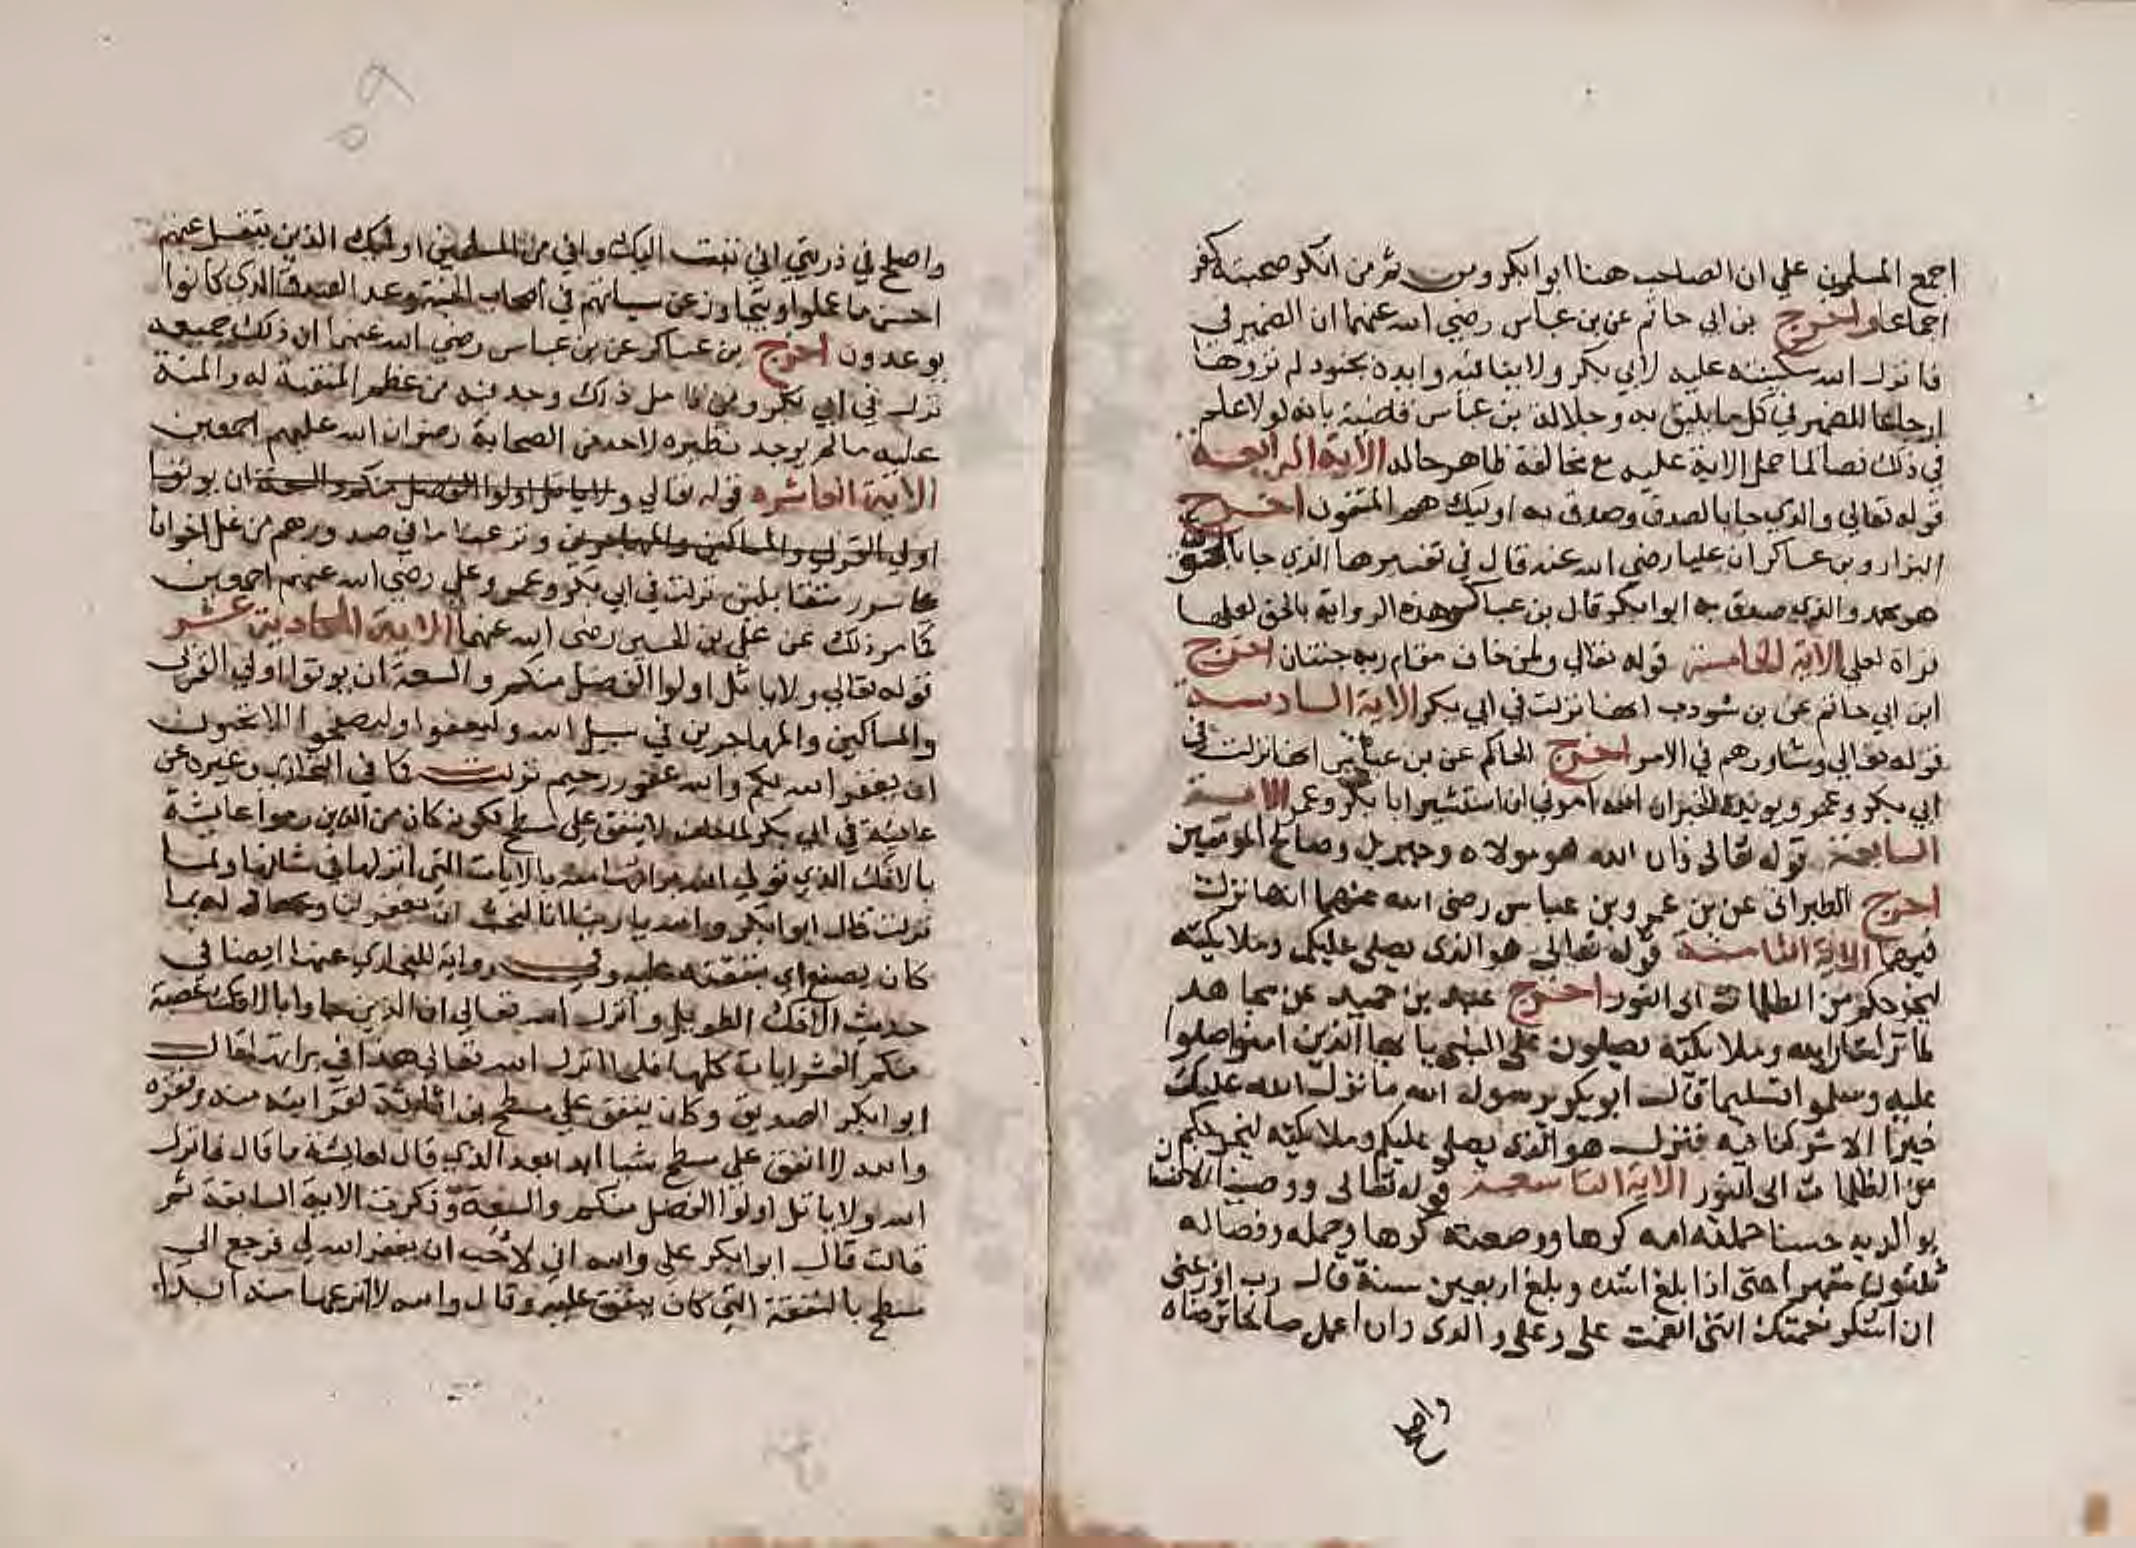 اجمع المسلمون علي ان الصاحب هنا ابوابكر ومن ثم من انكر صحبته كفر
اجماعا واخرج بن ابي حاتم عن بن عباس رضي الله عنهما ان الضمير في
فانزل الله سكينته عليه لابي بكر ولا ينافيه وايده بجنود لم تروها
ارجاعا للضمير في كل ما يليق به وجلالة بن عباس قاضية بانه لولا علم
في ذلك نصا لما حمل الاية عليه مع مخالفة ظاهر حاله الاية الرابعة
قوله تعالي والذي جا بالصدق وصدق به اوليك هم المتقون اخرج
البزار وبن عساكر ان عليا رضي الله عنه قال في تفسيرها الذي جا بالحق
هو محمد والذي صدق به ابوابكر قال بن عساكر هذه الرواية بالحق لعلها
قراة لعلي الاية الخامسة قوله تعالي ولمن خاف مقام ربه جنتان اخرج
ابن ابي حاتم عن بن شودب انها نزلت في ابي بكر الاية السادسة
قوله تعالي وشاورهم في الامر اخرج الحاكم عن بن عباس انها نزلت في
ابي بكر وعمر ويويده الخبر ان الله امرني ان استشير ابا بكر وعمر الاية
السابعة قوله تعالى فان الله هو مولاه وجبريل وصالح المومنين
اخرج الطبرانى عن بن عمر وبن عباس رضى الله عنهما انها نزلت
فيهما الاية الثامنة قوله تعالى هو الذى يصلي عليكم وملايكته
ليخرجكم من الظلمات الى النور اخرج عبد بن حميد عن مجاهد
لما نزلت ان الله وملايكته يصلون على النبي يا ايها الذين امنوا صلوا
عليه وسلموا تسليما قال ابو بكر يرسول الله ما نزل الله عليك
خيرا الا شركنا فيه فنزل هو الذى يصلي عليكم وملايكته ليخرجكم
من الظلمات الى النور الاية التاسعة قوله تعالى ووصينا الانسان
بوالديه حسنا حملته امه كرها ووضعته كرها وحمله وفصاله
ثلثون شهرا حتى اذا بلغ اشده وبلغ اربعين سنة قال رب اوزعنى
ان اشكر نعمتك التى انعمت على وعلى والدى وان اعمل صالحا ترضاه
واصلح
واصلح في ذريتي اني تبت اليك واني من المسلمين اوليك الذين يتقبل عنهم
احسن ما عملوا ويتجاوز عن سياتهم في اصحاب الجنة وعد الصدق الذي كانوا
يوعدون اخرج بن عساكر عن بن عباس رضي الله عنهما ان ذلك جميعه
نزل في ابي بكر ومن تامل ذلك وجد فيه من عظم المنقبة له والمنة
عليه ما لم يوجد نظيره لاحد من الصحابة رضوان الله عليهم اجمعين
الاية العاشره قوله تعالي ولا ياتل اولوا الفضل منكم والسعة ان يوتوا
اولي القربي والمساكين والمهاجرين ونزعنا ما في صدورهم من غل اخوانا
علي سرر متقابلين نزلت في ابي بكر وعمر وعلي رضي الله عنهم اجمعين
كما مر ذلك عن علي بن الحسين رضي الله عنهما الاية الحادية عشر
قوله تعالي ولا ياتل اولوا الفضل منكم والسعة ان يوتوا اولي القربي
والمساكين والمهاجرين في سبيل الله وليعفوا وليصفحوا الا تحبون
ان يغفر الله لكم والله غفور رحيم نزلت كما في البخاري وغيره عن
عايشة في ابي بكر لما حلف لا ينفق علي مسطح لكونه كان من الذين رموا عايشة
بالافك الذي تولي الله براتها منه بالايات التي انزلها في شانها ولما
نزلت قال ابوابكر والله يا ربنا انا لنحب ان تغفر لنا وعاد له بما
كان يصنع اي بنفقته عليه وفي رواية للبخاري عنها ايضا في
حديث الافك الطويل وانزل الله تعالي ان الذين جاوا بالافك عصبة
منكم العشر ايات كلها فلما انزل الله تعالي هذا في براتي قال
ابوابكر الصديق وكان ينفق علي مسطح بن اثاثة لقرابته منه وفقره
والله لا انفق علي مسطح شيا ابدا بعد الذي قال لعايشة ما قال فانزل
الله ولا ياتل اولوا الفضل منكم والسعة وذكرت الاية السابقة ثم
قالت قال ابوابكر علي والله اني لاحب ان يغفر الله لي فرجع الي
مسطح بالنفقة التي كان ينفق عليه وقال والله لا انزعها منه ابدا